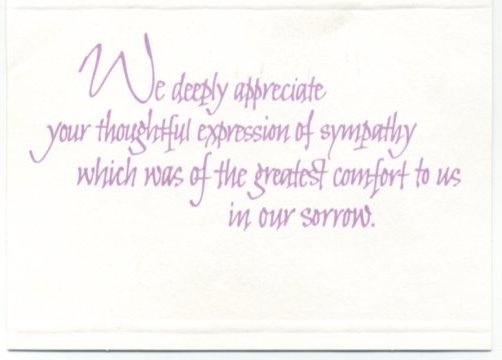 We deeply appreciate
your thoughtful expression of sympathy
which was of the greatest comfort to us
in our sorrow.